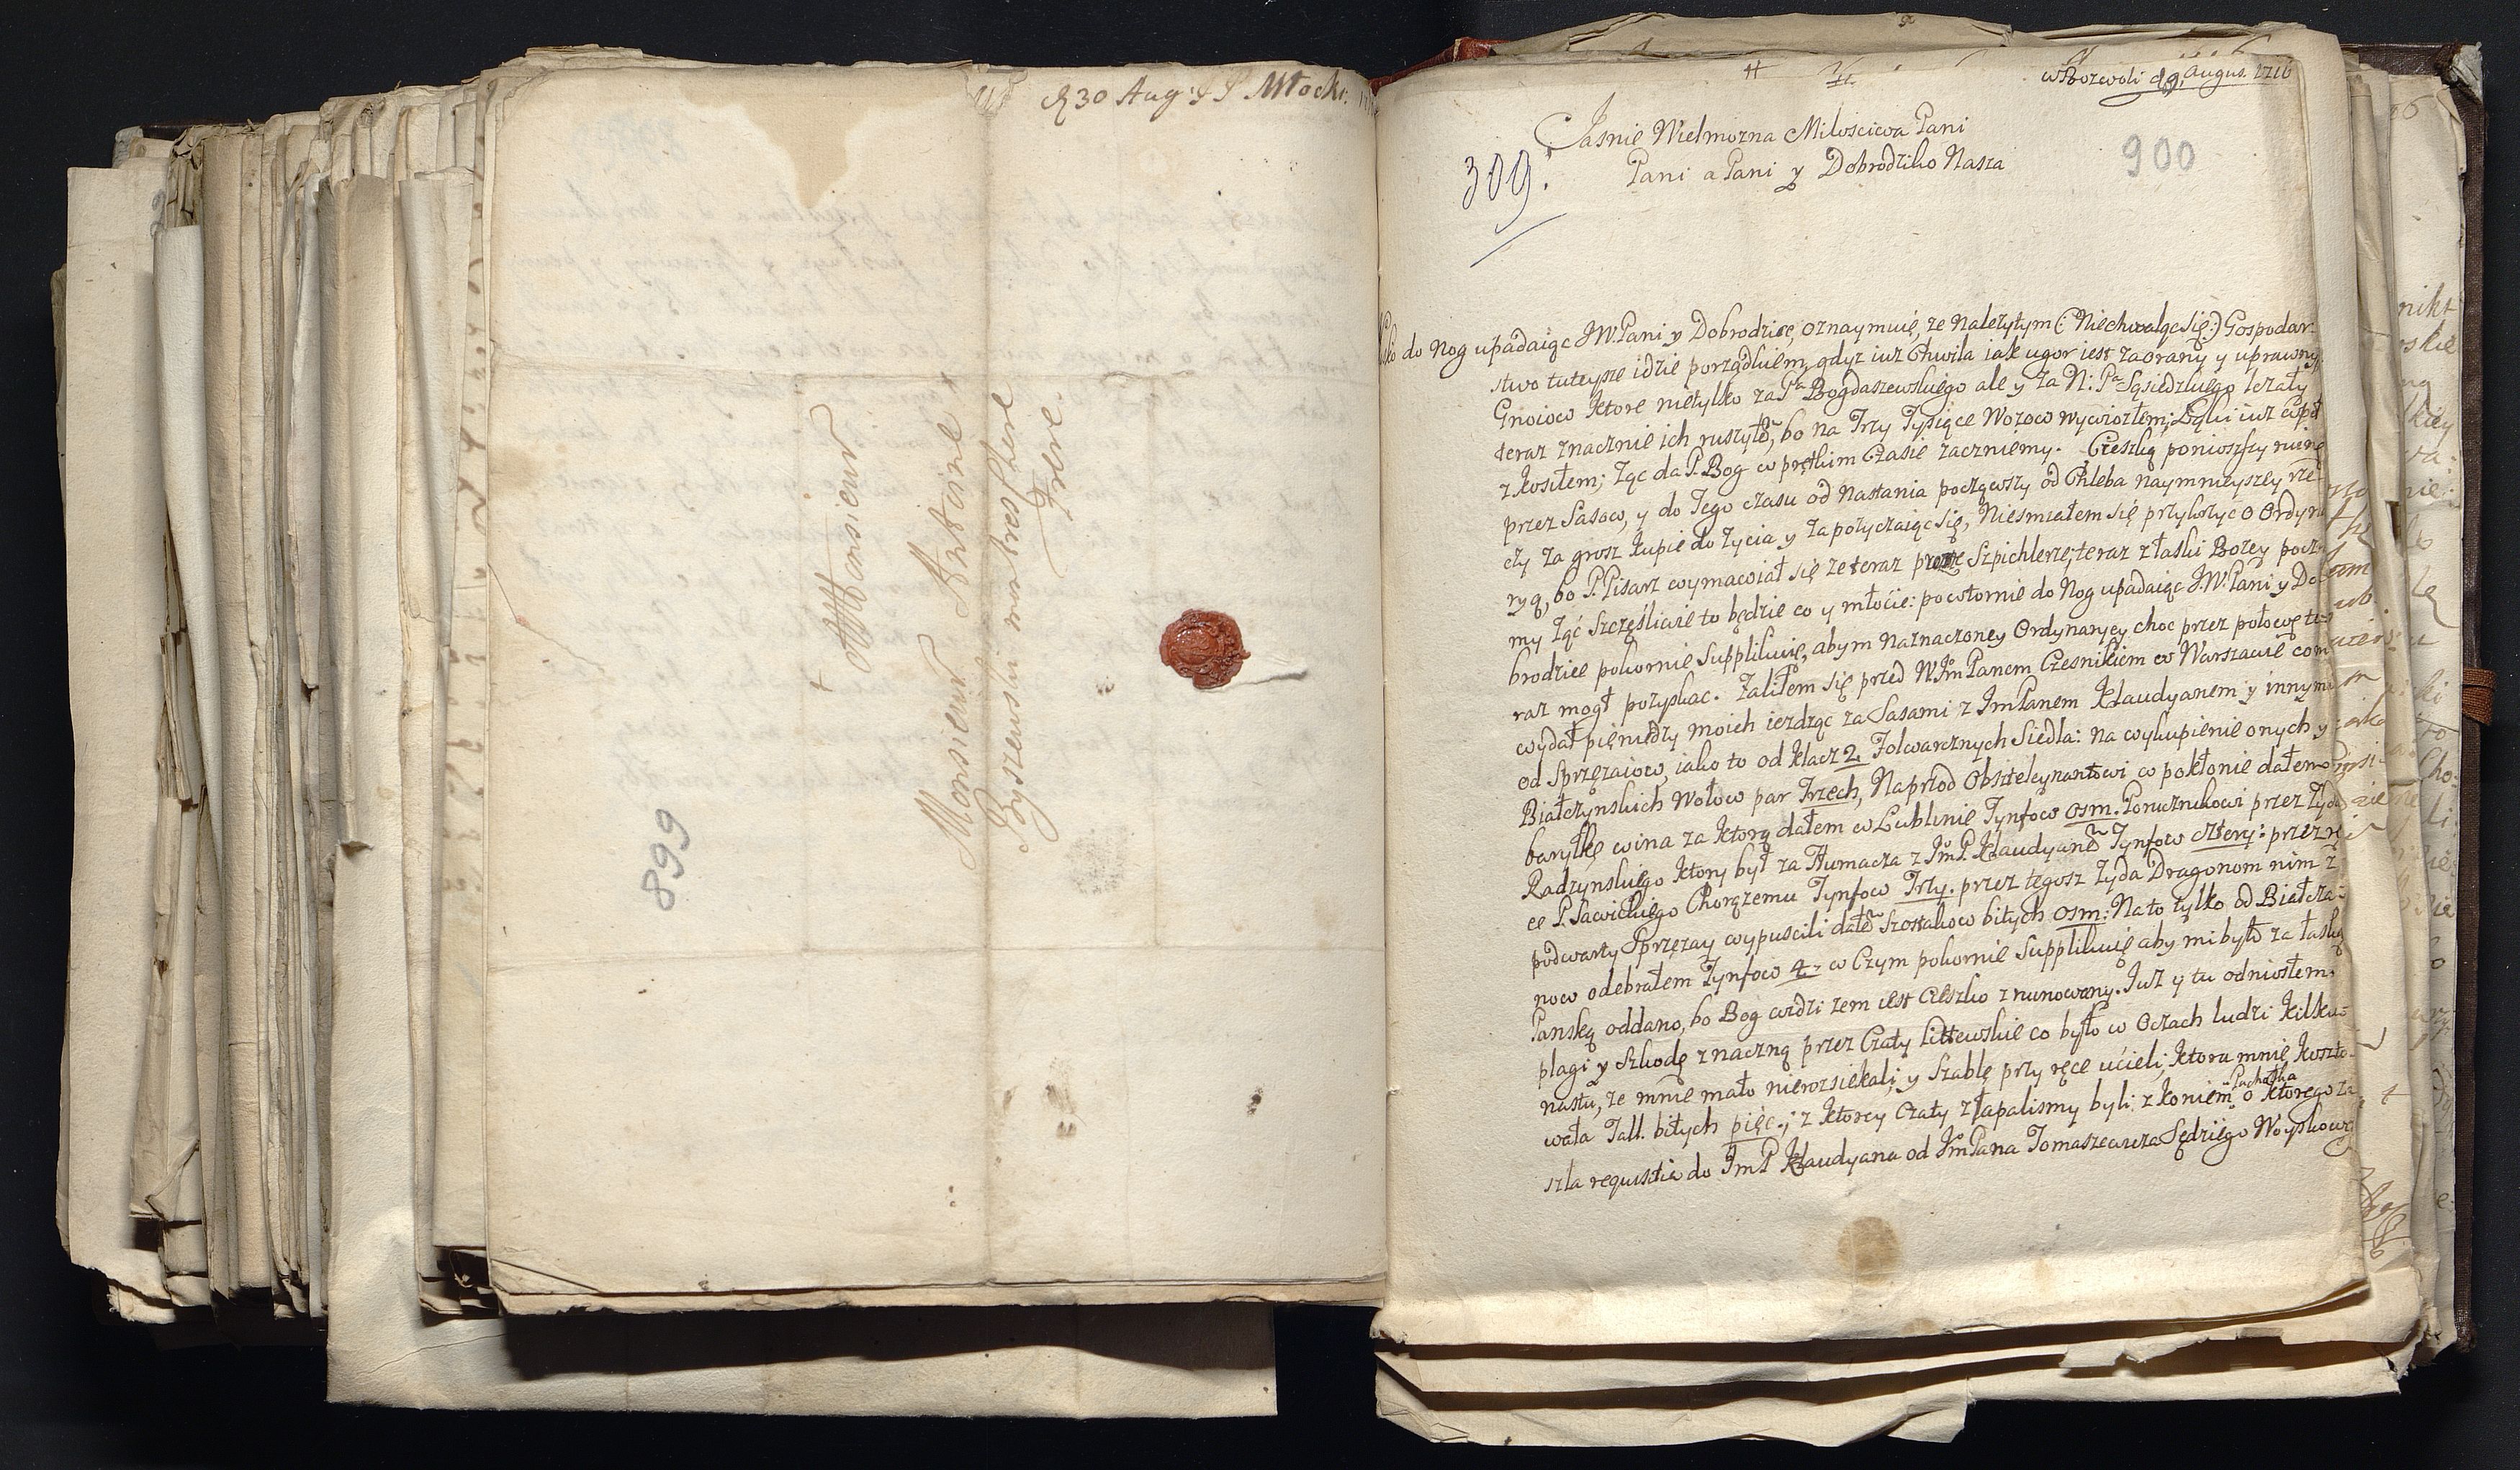 R 30 Aug: J P Mtocki
Monsieur
Monsieur Antoine
Byszewski mon tres Chere
Frere.
899
w Rozwoli d 9. Augus. 1716
309.
900
Jasnie Wielmozna Miłosciwa Pani
Pani a Pani y Dobrodziko Nasza
do Nog upadaiąc JW. Pani y Dobrodzice, oznaymuię, ze Nalezytym (: Niechwaląc się:) Gospodar
stwo tuteysze idzie porządkiem, gdyz iuz Chwila iak ugor iest zaorany y uprawny
Gnoiow ktore nietylko za Pa Bogdaszewskiego ale y za N: Pa Sąsiedzkiego lezały
teraz znacznie ich ruszyło, bo na Trzy Tysiące Wozow wywiozłem; Łąki iuz
z kosiłem; Ząc da P. Bog w prętkim Czasie zaczniemy. Czeszką ponioszszy ruinę
przez Sasow, y do Tego czasu od Nastania począwszy od Chleba naymnieyszey rze
czy za grosz kupie do zycia y zapozyczaiąc się, Niesmiałem się przykrzyc o Ordyna
ryą, bo P. Pisarz wymawiał się ze teraz Szpichlerze; teraz z łaski Bozey pocz
my Ząć Szczęśliwie to będzie co y młocie: powtornie do Nog upadaiąc J.W. Pani y Do
brodzice pokornie Supplikuię, abym naznaczoney Ordynaryey choc przez połowę te
raz mogł pozyskac. Zaliłem się przed W. Im Panem Czesnikiem w Warszawie com
wydał pięniedzy moich iezdząc za Sasami z Im Panem Klaudyanem y innymi
od Sprzęzaiow, iako to od klacz 2. Folwarcznych Siedla: na wykupienie onych y
Białczynskich Wołow par Trzech, Naprzod Obsztelcynantowi w pokłonie dałem
baryłkę wina za ktorą dałem w Lublinie Tynfow osm. Porucznikowi przez Zyda
Radzynskiego ktory był za Tłumacza z Im P. Klaudyane Tynfow cztery: przez rę
ce P. Sawickiego Chorązemu Tynfow Trzy. przez tegosz Zyda Dragonom nim z
podwarty Sprzęzay wypuscili dałe Szostakow bitych osm: Na to tylko od Białcza
now odebrałem Tynfow 4. w Czym pokornie Supplikuię aby mi było za łaską
Panską oddano, bo Bog widzi zem iest Cieszko zrunowany. Juz y tu odniosłem
plagi y Szkodę znaczną przez Czaty Littewskie co było w Oczach ludzi kilku
nastu, ze mnie mało nierozsiekali, y Szablę przy ręce ucieli, ktora mnie koszto
wała Tall. bitych pięc.; z ktorey Czaty złapalismy byli z koniem Pachołka o ktorego za
szła requisitia do Im P Klaudyana od Im Pana Tomaszewicza Sędziego Woyskowe